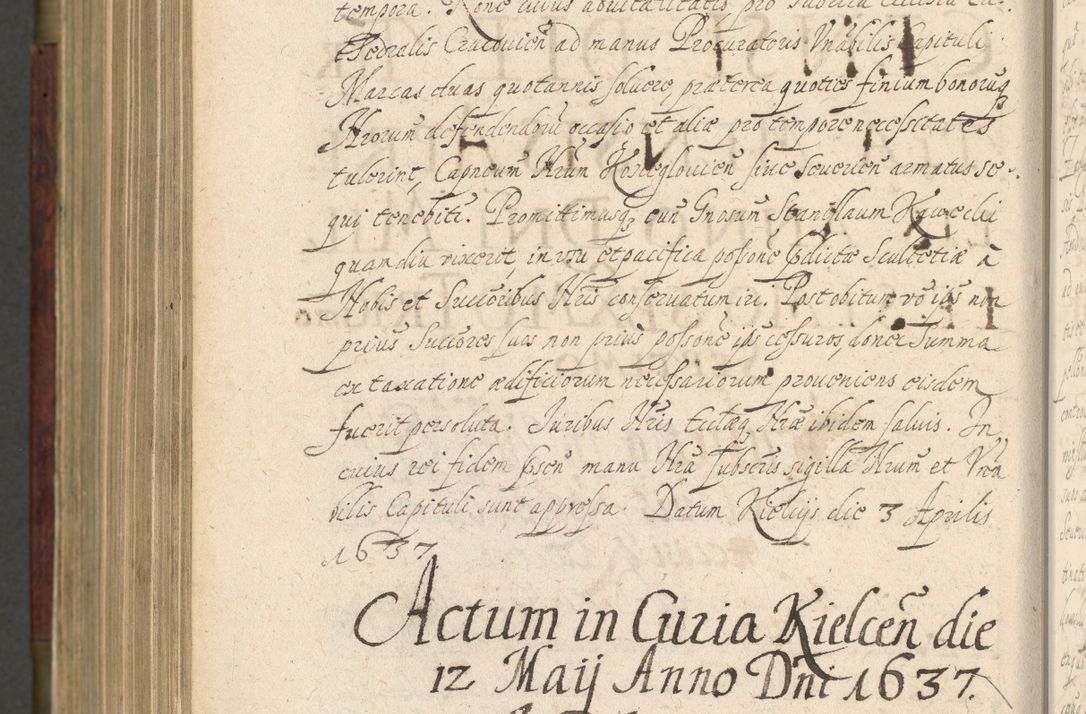 tempora. Rone cuius advitalitatis pro fabrica Ecclesiæ Ca-
thedralis Cracovien̄ ad manus Procuratoris Vn̄abilis Capituli
Marcas duas quotannis solvere, præterea quoties finium bonorūq̧
Nrorum defendendorū occasio et aliæ pro tempore necessitates
tulerint, Capneum Nrūm Kozieglovien̄ sive Severien̄ armatus se-
qui tenebitr. Promittimusq̧ eun̄ Gnosum Stanislaum Kawecki
quamdiu vixerit, in usu et pacifica possone p̄dictæ Scultetiæ à
Nobis et Succoribus Nris conservatum iri. Post obitum vō ips̄ non
prius Succores suos non prius possone ips̄ cessuros, donec Summa
ex taxatione ædificiorum necessariorum proveniens eisdem
fuerit persoluta. Iuribus Nris Ecclæq̧ Nræ ibidem salvis. In
cuius rei fidem p̄sen̄ manu Nrā subscris̄ sigilla Nrūm et Vn̄a
bilis Capituli sunt appressa. Datum Kielciis die 3 Aprilis
1637
Actum in Curia Kielcen̄ die
12 Maij Anno Dn̄i 1637.